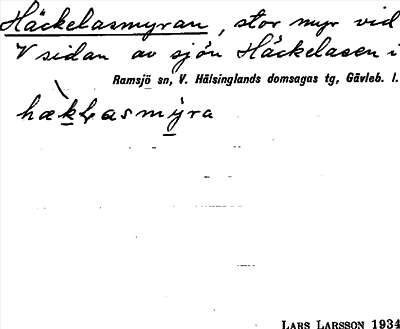 Häckelasmyran, stor myr vid
V sidan av sjön Häckelasen i
Ramsjö sn, V. Hälsinglands domsagas tg, Gävleb. l.
LARS LARSSON 1934